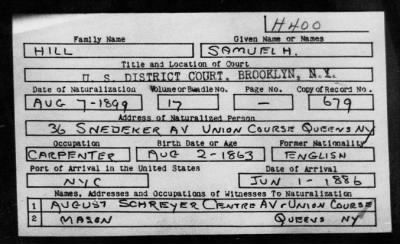 H400
Family Name Given Name or Names
HILL SAMUEL H.
Title and Location of Court
U. S. DISTRICT COURT, BROOKLYN, N.Y.
Date of Naturalization Volume or Bundle No. Page No. Copy of Record No.
AUG 7-1899 17 — 679
Address of Naturalized Person
36 SNEDEKER AV UNION COURSE QUEENS NY
Occupation Birth Date or Age Former Nationality
CARPENTER AUG 2-1863 ENGLISH
Port of Arrival in the United States Date of Arrival
NYC JUN 1-1886
Names, Addresses and Occupations of Witnesses To Naturalization
1 AUGUST SCHREYER CENTRE AV UNION COURSE
2 MASON QUEENS NY